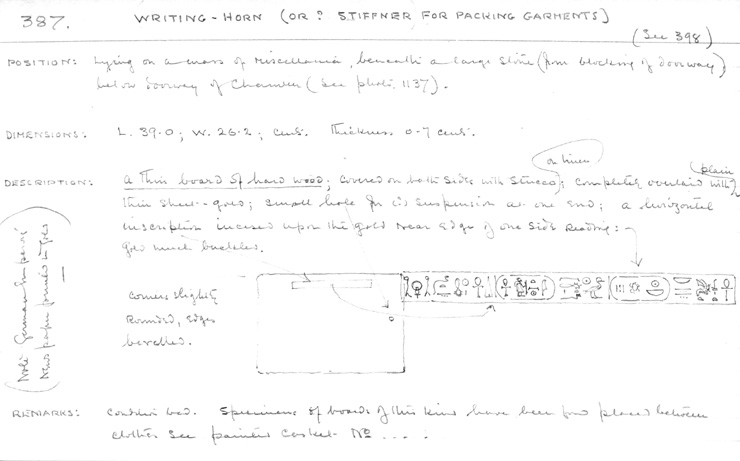 387. WRITING-HORN (OR ? STIFFNER FOR PACKING GARMENTS)
(See 398)
POSITION: Lying on a mass of Miscellanea, beneath a large stone (from blocking of doorway)
below doorway of Chamber (See photo. 1137).
DIMENSIONS: L. 39.0; W. 26.2; cms. Thickness 0.7 cms.
on linen
plain
DESCRIPTION: a thin board of hard wood; covered on both sides with stucco; completely overlaid with
thin sheet-gold; small hole for (?) suspension at one end; a horizontal
inscription incised upon the gold near edge of one side reading:-
Gold much buckled.
Corners slightly
rounded, edges
bevelled.
(Note German
News paper printed in gold)
REMARKS: Condition bad. Specimens of boards of this kind have been found placed between
clothes see painted casket No ....